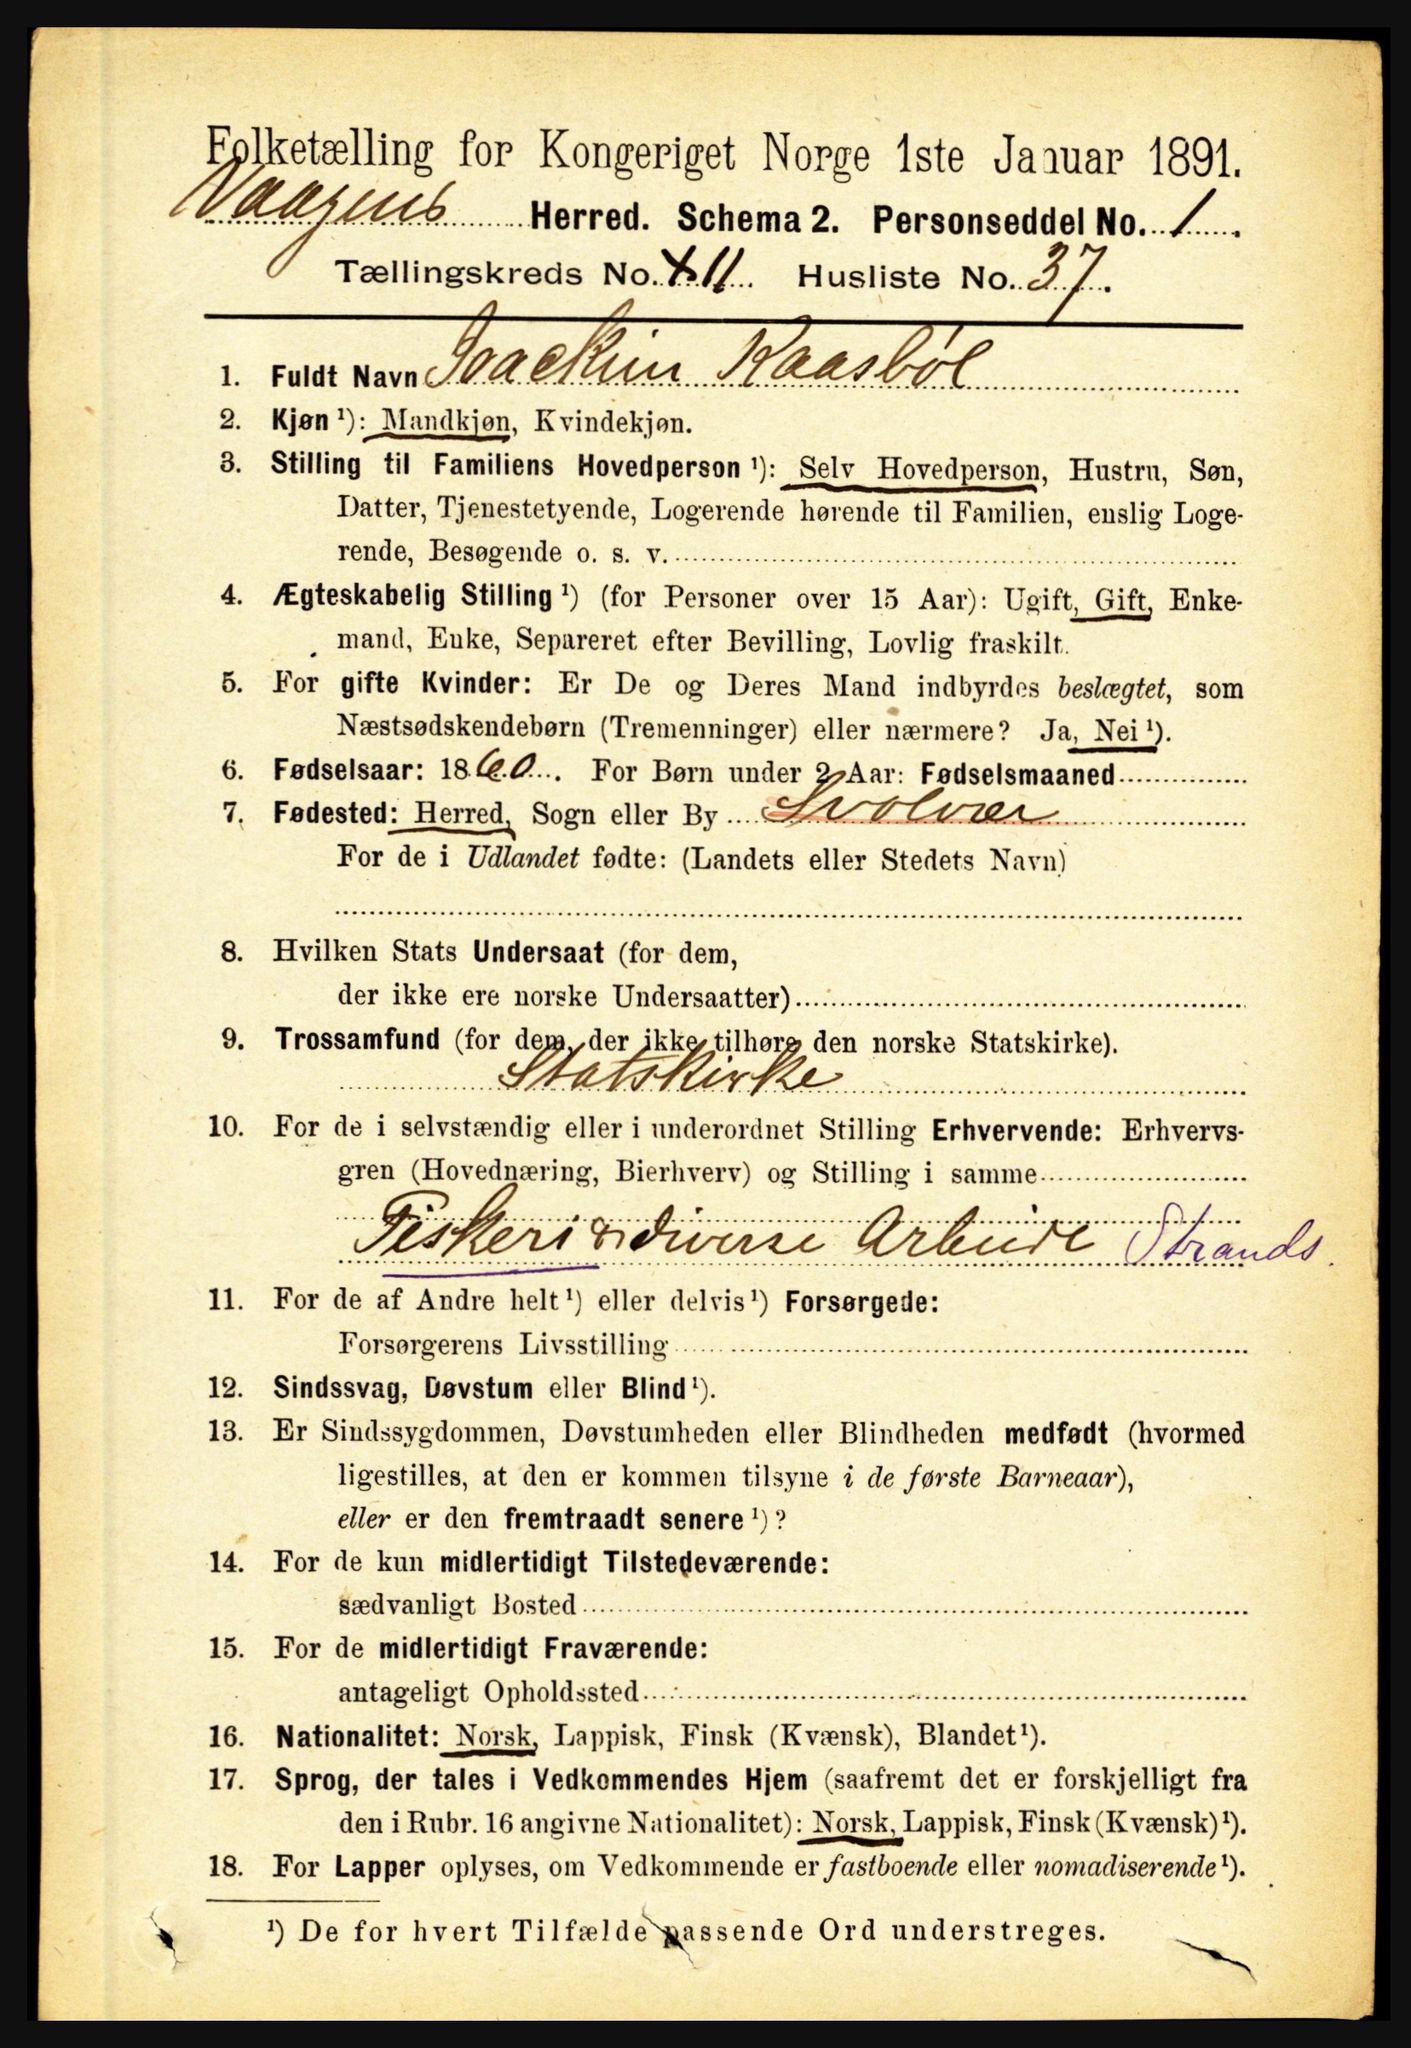 Folketælling for Kongeriget Norge 1ste Januar 1891.
Vaagens Herred. Schema 2. Personseddel No. 1.
Tællingskreds No. 11. Husliste No. 37.
1. Fuldt Navn Joachim Raasböl
2. Kjøn ¹): Mandkjøn, Kvindekjøn.
3. Stilling til Familiens Hovedperson ¹): Selv Hovedperson, Hustru, Søn,
Datter, Tjenestetyende, Logerende hørende til Familien, enslig Loge-
rende, Besøgende o. s. v.
4. Ægteskabelig Stilling ¹) (for Personer over 15 Aar): Ugift, Gift, Enke-
mand, Enke, Separeret efter Bevilling, Lovlig fraskilt.
5. For gifte Kvinder: Er De og Deres Mand indbyrdes beslægtet, som
Næstsødskendebørn (Tremenninger) eller nærmere? Ja, Nei ¹).
6. Fødselsaar: 1860. For Børn under 2 Aar: Fødselsmaaned
7. Fødested: Herred, Sogn eller By Svolvær
For de i Udlandet fødte: (Landets eller Stedets Navn)
8. Hvilken Stats Undersaat (for dem,
der ikke ere norske Undersaatter)
9. Trossamfund (for dem, der ikke tilhøre den norske Statskirke).
Statskirke
10. For de i selvstændig eller i underordnet Stilling Erhvervende: Erhvervs-
gren (Hovednæring, Bierhverv) og Stilling i samme
Fiskeri & diverse Arbeide Strands.
11. For de af Andre helt ¹) eller delvis ¹) Forsørgede:
Forsørgerens Livsstilling
12. Sindssvag, Døvstum eller Blind ¹).
13. Er Sindssygdommen, Døvstumheden eller Blindheden medfødt (hvormed
ligestilles, at den er kommen tilsyne i de første Barneaar),
eller er den fremtraadt senere ¹)?
14. For de kun midlertidigt Tilstedeværende:
sædvanligt Bosted
15. For de midlertidigt Fraværende:
antageligt Opholdssted
16. Nationalitet: Norsk, Lappisk, Finsk (Kvænsk), Blandet ¹).
17. Sprog, der tales i Vedkommendes Hjem (saafremt det er forskjelligt fra
den i Rubr. 16 angivne Nationalitet): Norsk, Lappisk, Finsk (Kvænsk) ¹).
18. For Lapper oplyses, om Vedkommende er fastboende eller nomadiserende ¹).
¹) De for hvert Tilfælde passende Ord understreges.